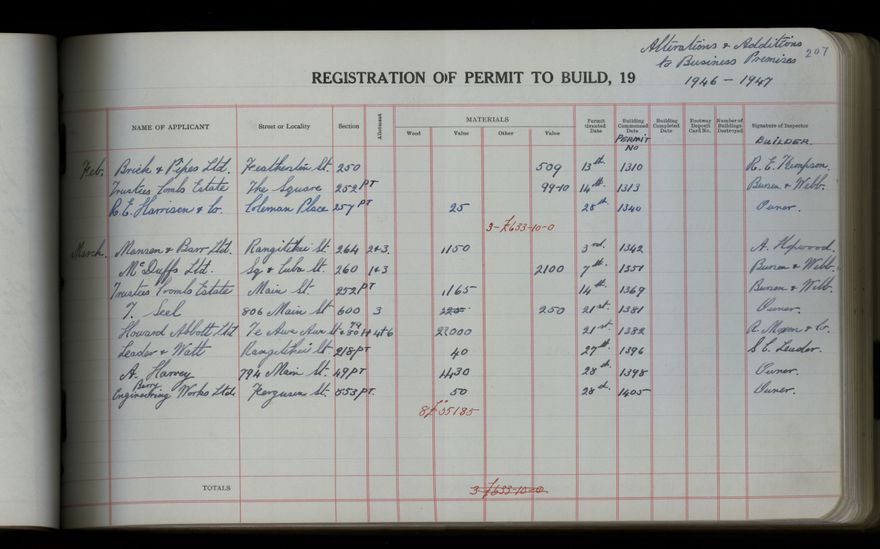 Alterations & Additions
to Business Premises
1946 - 1947
207
REGISTRATION OF PERMIT TO BUILD, 19
NAME OF APPLICANT Street or Locality Section Allotment MATERIALS Wood Value Other Value Permit Granted Date Building Commenced Date Building Completed Date Footway Deposit Card No. Number of Buildings Destroyed Signature of Inspector
PERMIT NO BUILDER.
Feb. Brick & Pipes Ltd. Featherston St. 250 509 13th 1310 R. E. Thompson.
Trustees Combs Estate The Square 252 PT 99-10 14th 1313 Burson & Webb.
R. E. Harrison & Co. Coleman Place 257 PT 25 28th 1340 Owner.
3-£633-10-0
March. Manson & Barr Ltd. Rangitikei St. 264 2&3. 1150 3rd. 1342 A. Hopwood.
McDuffs Ltd. Sq & Cuba St. 260 1&3 2100 7th. 1351 Burson & Webb.
Trustees Estate Main St. 252 PT 1165 14th 1369 Burson & Webb.
T. Seel 806 Main St. 600 3 250 21st. 1381 Owner.
Howard Abbott Ltd Te Awe Awe St 4&6 22000 21st. 1382 & Co.
Leader & Watt Rangitikei St 218 PT 40 27th. 1396 S. C. Leader.
A. Harvey 794 Main St. 49 PT 28th 1398 Owner.
Berry
Engineering Works Ltd. Ferguson St. 553 PT. 50 28th. 1405 Owner.
8£35185
TOTALS 3-£633-10-0